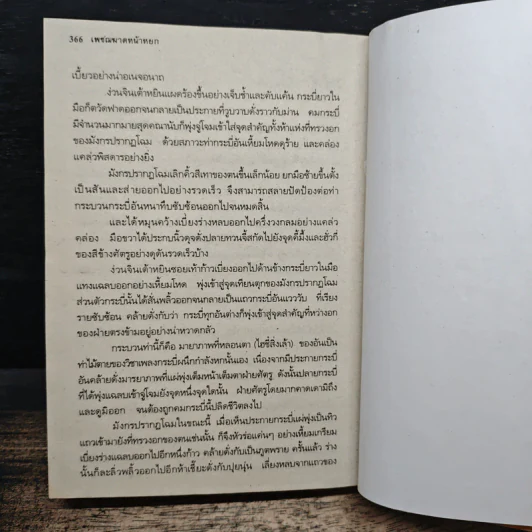 366 เพชฌฆาตหน้าหยก
เบี้ยวอย่างน่าอเนจอนาถ
ง่วนจินเต้าหยินแผดร้องขึ้นอย่างเจ็บช้ำและคับแค้น กระบี่ยาวใน
มือก็ตวัดฟาดออกจนกลายเป็นประกายที่วูบวาบดั่งราวกับม่าน คมกระบี่
มีจำนวนมากมายสุดคณานับก็พุ่งจู่โจมเข้าใส่จุดสำคัญทั้งห้าแห่งที่ทรวงอก
ของมังกรปรากฏโฉม ด้วยสภาวะท่ากระบี่อันเหี้ยมโหดดุร้าย และคล่อง
แคล่วพิสดารอย่างยิ่ง
มังกรปรากฏโฉมเลิกคิ้วสีเทาของตนขึ้นเล็กน้อย ยกมือซ้ายขึ้นตั้ง
เป็นสันและส่ายออกไปอย่างรวดเร็ว จึงสามารถสลายปัดป้องต่อท่า
กระบวนกระบี่อันหนาทึบซับซ้อนออกไปจนหมดสิ้น
และได้หมุนคว้างเบี่ยงร่างหลบออกไปครึ่งวงกลมอย่างแคล่ว
คล่อง มือขวาได้ประกบนิ้วดุจดั่งปลายทวนจี้สกัดไปยังจุดคี้มึ้งและฮั่วกี่
ของสีข้างศัตรูอย่างดุดันรวดเร็วบ้าง
ง่วนจินเต้าหยินซอยเท้าก้าวเบี่ยงออกไปด้านข้างกระบี่ยาวในมือ
แทงแฉลบออกอย่างเหี้ยมโหด พุ่งเข้าสู่จุดเทียนตุกของมังกรปรากฏโฉม
ส่วนตัวกระบี่นั้นได้สั่นพลิ้วออกจนกลายเป็นแถวกระบี่อันแวววับ ที่เรียง
รายซับซ้อน คล้ายดั่งกับว่า กระบี่ทุกอันต่างก็พุ่งเข้าสู่จุดสำคัญที่หว่างอก
ของฝ่ายตรงข้ามอยู่อย่างน่าหวาดกลัว
กระบวนท่านี้ก็คือ มายาภาพที่หลอนตา (ไฮซี่สิ่งเล้า) ของอันเป็น
ท่าไม้ตายของวิชาเพลงกระบี่ผนึกกำลังหกนั้นเอง เนื่องจากมีประกายกระบี่
อันคล้ายดั่งมารยาภาพที่แผ่พุ่งเต็มหน้าเต็มตาฝ่ายศัตรู ดังนั้นปลายกระบี่
ที่ได้พุ่งแฉลบเข้าจู่โจมยังจุดหนึ่งจุดใดนั้น ฝ่ายศัตรูโดยมากคาดเดามิถึง
และดูมิออก จนต้องถูกคมกระบี่นี้ปลิดชีวิตลงไป
มังกรปรากฏโฉมในขณะนี้ เมื่อเห็นประกายกระบี่แผ่พุ่งเป็นทิว
แถวเข้ามายังที่ทรวงอกของตนเช่นนั้น ก็จึงหัวร่อแค่นๆ อย่างเหี้ยมเกรียม
เบี่ยงร่างแฉลบออกไปอีกหนึ่งก้าว คล้ายดั่งกับเป็นภูตพราย ครั้นแล้ว ร่าง
นั้นก็ละลิ่วพลิ้วออกไปอีกห้าเชี้ยะดั่งกับปุยนุ่น เลี่ยงหลบจากแถวของ